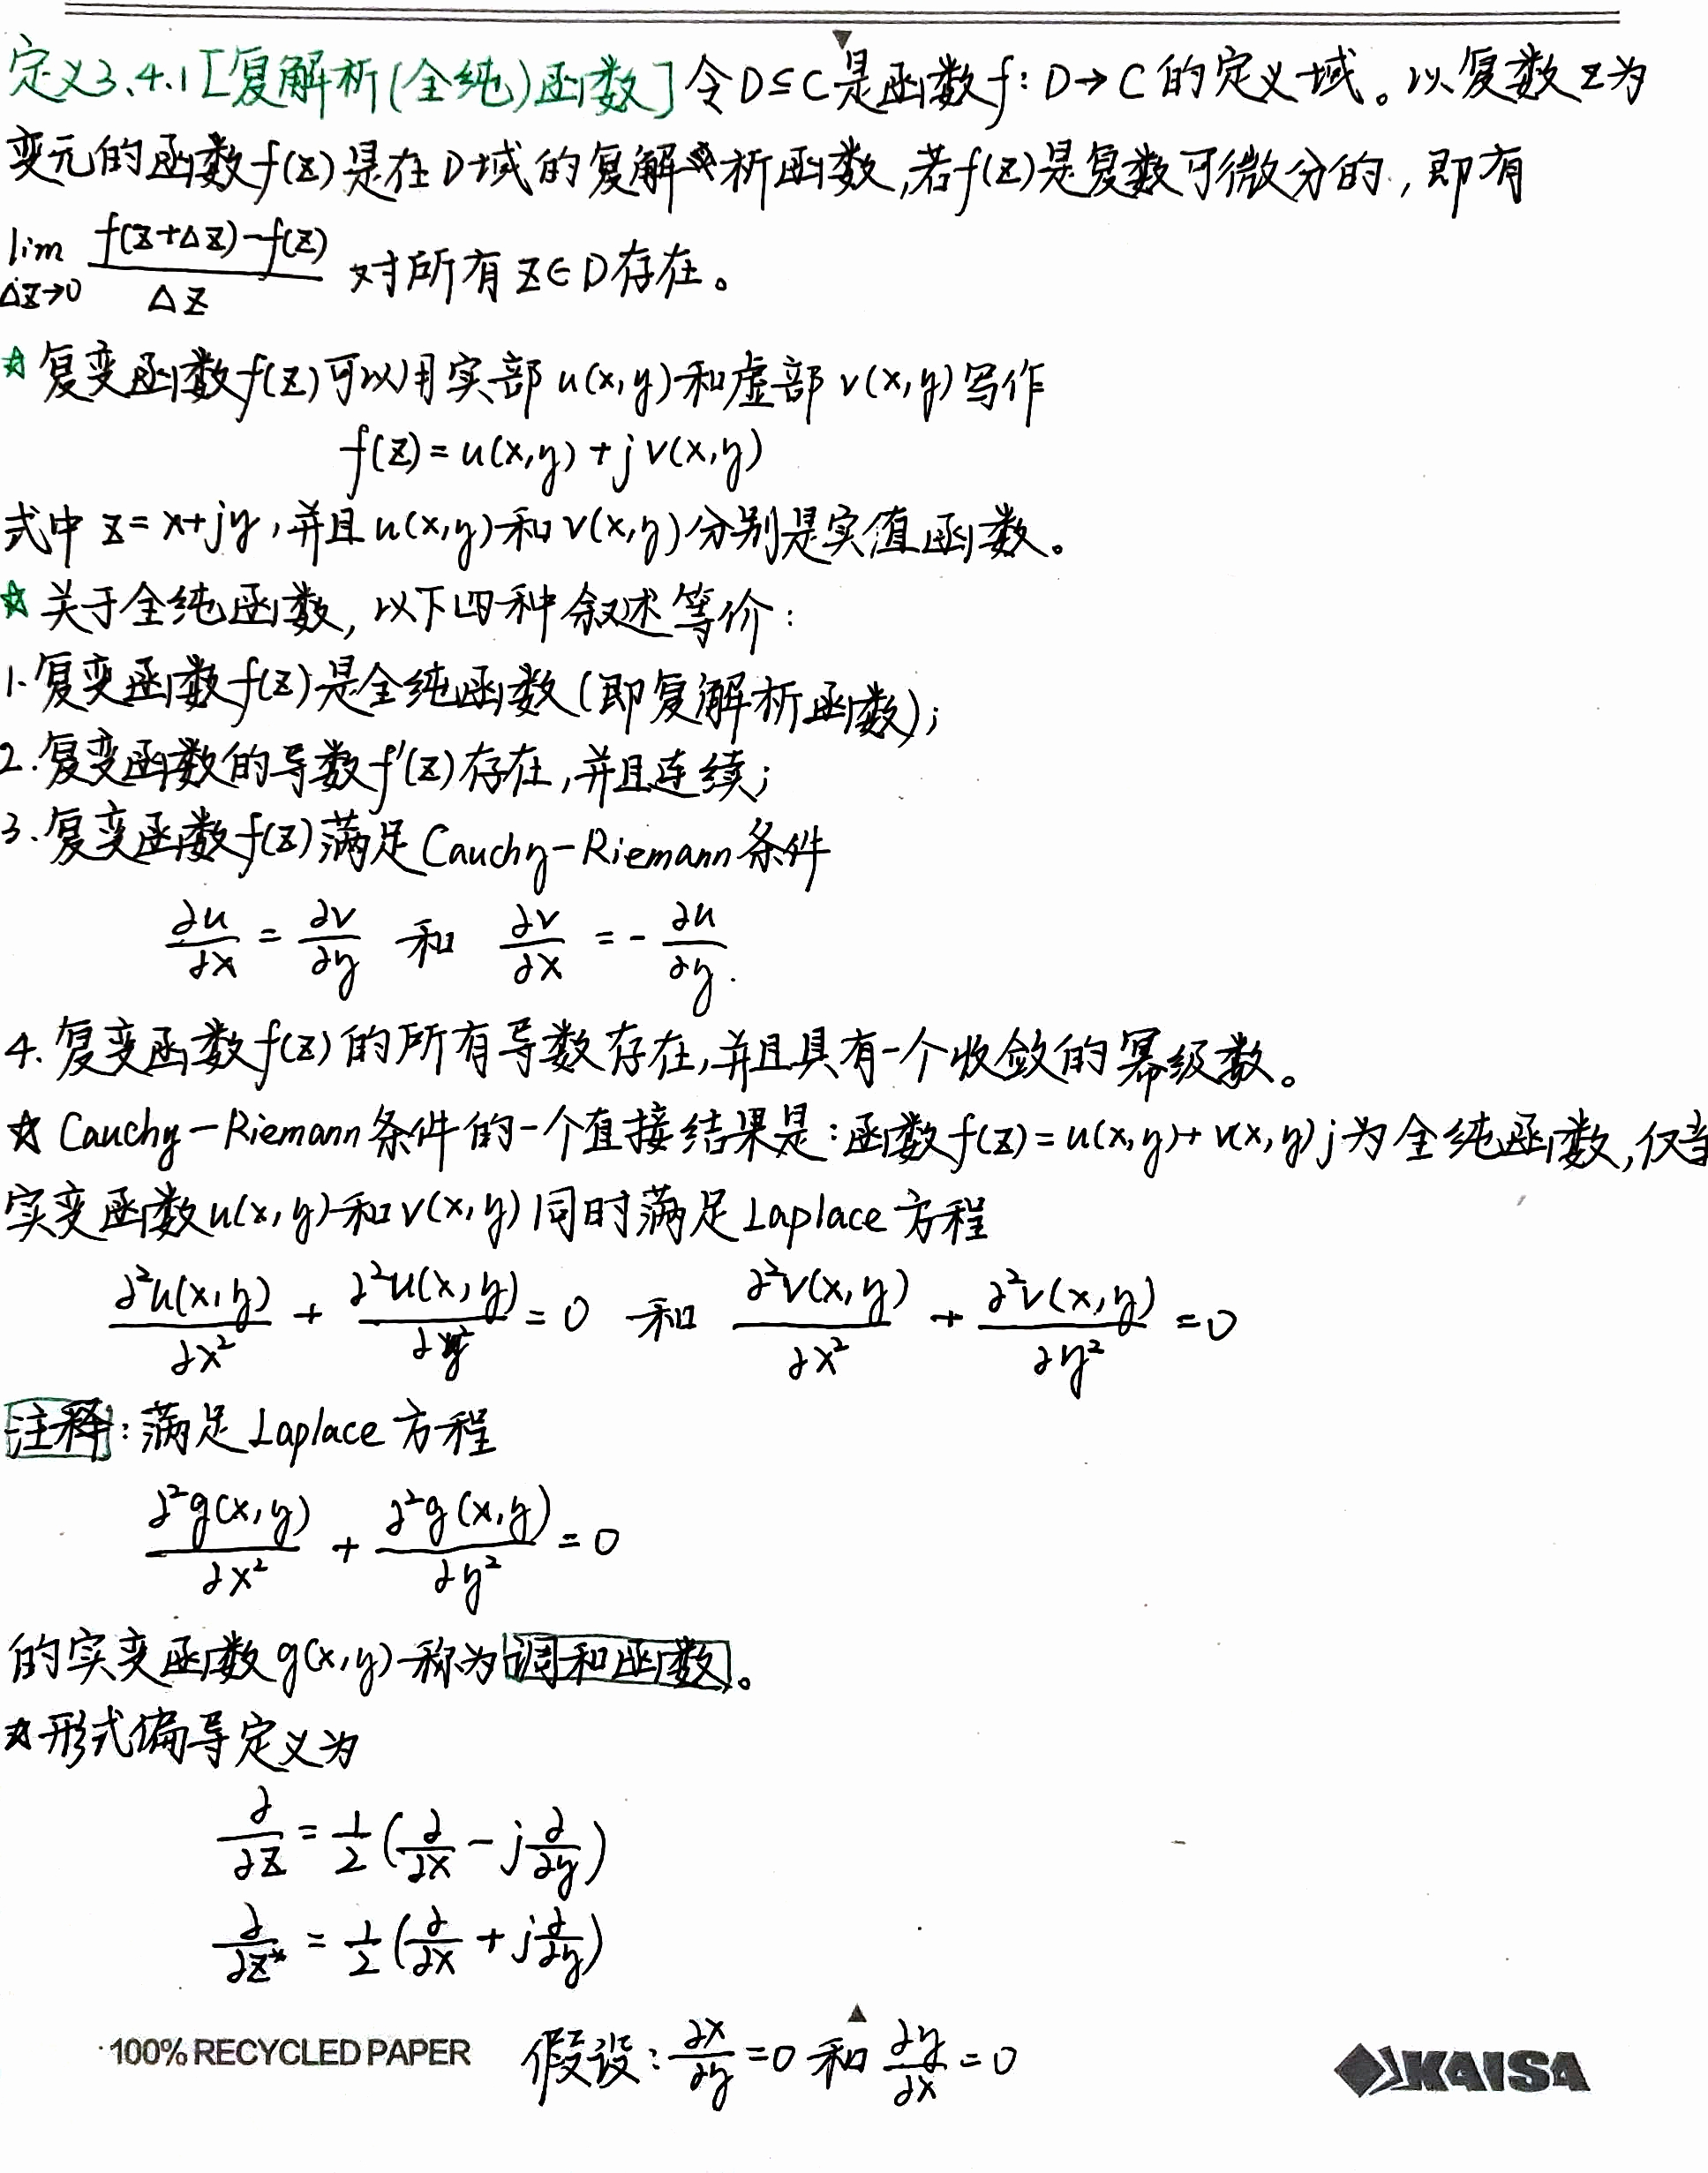 定义3.4.1[复解析(全纯)函数] 令D⊆C是函数f: D→C的定义域。以复数z为
变元的函数f(z)是在D域的复解析函数,若f(z)是复数可微分的,即有
lim_{Δz→0} (f(z+Δz)-f(z))/Δz 对所有z∈D存在。
☆复变函数f(z)可以用实部u(x,y)和虚部v(x,y)写作
f(z)=u(x,y)+jv(x,y)
式中z=x+jy,并且u(x,y)和v(x,y)分别是实值函数。
☆关于全纯函数,以下四种叙述等价:
1.复变函数f(z)是全纯函数(即复解析函数);
2.复变函数的导数f'(z)存在,并且连续;
3.复变函数f(z)满足Cauchy-Riemann条件
∂u/∂x = ∂v/∂y 和 ∂v/∂x = -∂u/∂y.
4.复变函数f(z)的所有导数存在,并且具有一个收敛的幂级数。
☆Cauchy-Riemann条件的一个直接结果是:函数f(z)=u(x,y)+v(x,y)j为全纯函数,仅当
实变函数u(x,y)和v(x,y)同时满足Laplace方程
∂²u(x,y)/∂x² + ∂²u(x,y)/∂y² = 0 和 ∂²v(x,y)/∂x² + ∂²v(x,y)/∂y² = 0
注释:满足Laplace方程
∂²g(x,y)/∂x² + ∂²g(x,y)/∂y² = 0
的实变函数g(x,y)称为调和函数。
☆形式偏导定义为
∂/∂z = 1/2(∂/∂x - j∂/∂y)
∂/∂z* = 1/2(∂/∂x + j∂/∂y)
100% RECYCLED PAPER 假设:∂x/∂y=0和∂y/∂x=0 KAISA